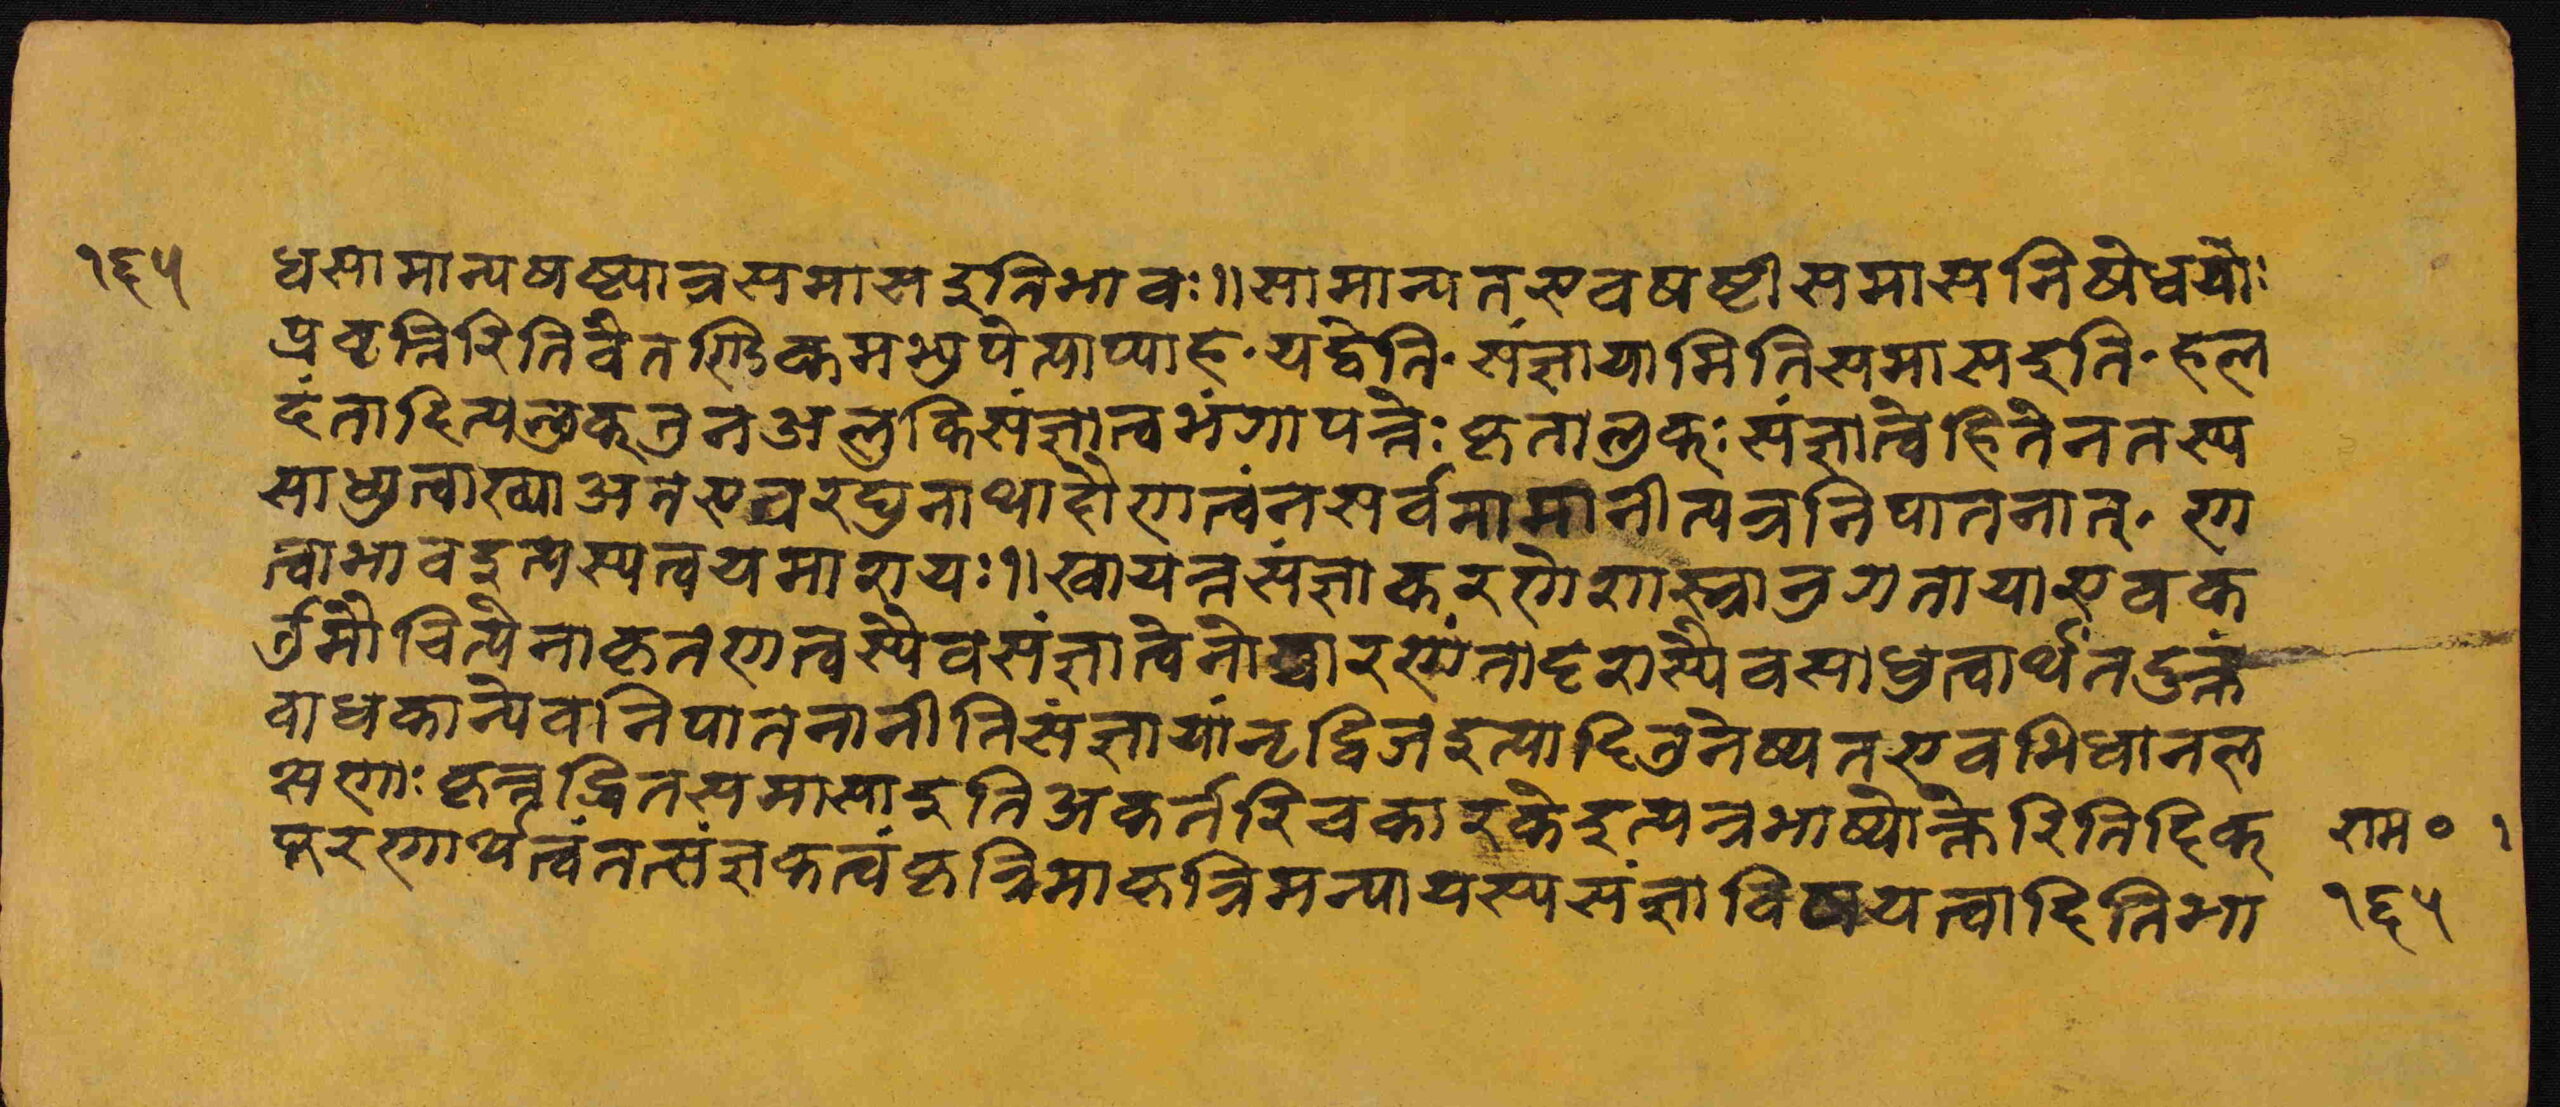 १६५
धसामान्यषष्ट्यात्रसमासइतिभावः॥सामान्यतएवषष्टीसमासनिषेधयोः
प्रवृत्तिरितिवैतण्डिकमभ्युपेत्याप्याह॰यद्वेति॰संज्ञायामितिसमासइति॰हल
दंतादित्यलुक्तुनअलुकिसंज्ञात्वभंगापत्तेःकृतालुक्ःसंज्ञात्वेहितेनतस्य
साधुत्वाख्याअतएवरघुनाथादौणत्वंनसर्वनामानीत्यत्रनिपातनात्॰ण
त्वाभावइत्यस्यत्वयमाशयः॥स्वायत्तसंज्ञाकरणेशास्त्रानुगतायाएवक
र्तुमौचित्येनाकृतणत्वस्यैवसंज्ञात्वेनोच्चारणंतादृशस्यैवसाधुत्वार्थंतदुक्तं
बाधकान्येवनिपातनानीतिसंज्ञायांनृद्विजइत्यादितुनेष्यतएवभिधानल
क्षणाःकृत्तद्धितसमासाइतिअकर्तरिचकारकेइत्यत्रभाष्योक्तेरितिदिक्
प्रकरणार्थत्वंतत्संज्ञकत्वंकृत्रिमाकृत्रिमन्यायस्यसंज्ञाविषयत्वादितिभा
राम॰ १
१६५